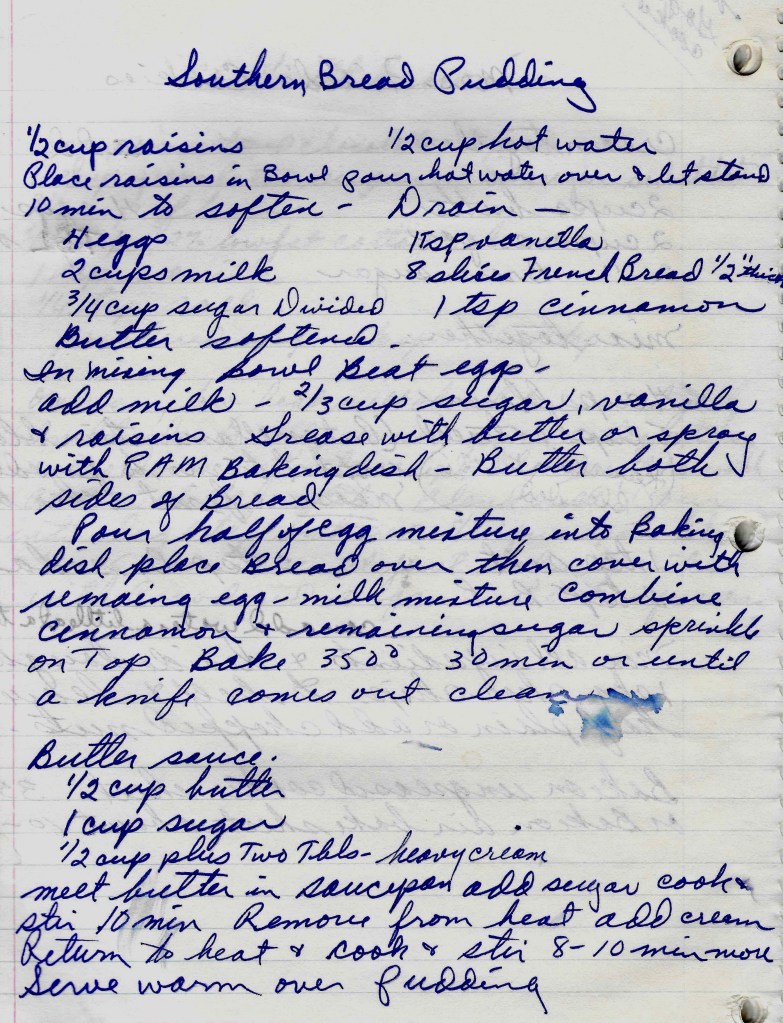 Southern Bread Pudding
1/2 cup raisins 1/2 cup hot water
Place raisins in Bowl pour hot water over & let stand
10 min to soften - Drain -
4 eggs 1 tsp vanilla
2 cups milk 8 slices French Bread 1/2" thick
3/4 cup sugar Divided 1 tsp cinnamon
Butter softened.
In mixing Bowl Beat eggs -
add milk - 2/3 cup sugar, vanilla
& raisins Grease with butter or spray
with PAM Baking dish - Butter both
sides of Bread
Pour half of egg mixture into Baking
dish place Bread over then cover with
remaing egg - milk mixture Combine
cinnamon & remaining sugar sprinkle
on Top Bake 350° 30 min or until
a knife comes out clean
Butter sauce.
1/2 cup butter
1 cup sugar
1/2 cup plus Two Tbls - heavy cream
melt butter in saucepan add sugar cook &
stir 10 min Remove from heat add cream
Return to heat & cook & stir 8-10 min more
Serve warm over pudding